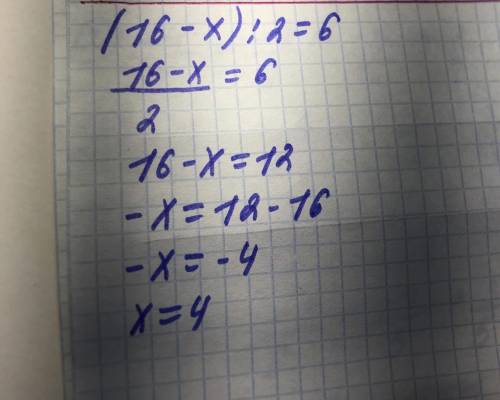 (16 - x) : 2 = 6
16 - x = 6
2
16 - x = 12
- x = 12 - 16
- x = - 4
x = 4